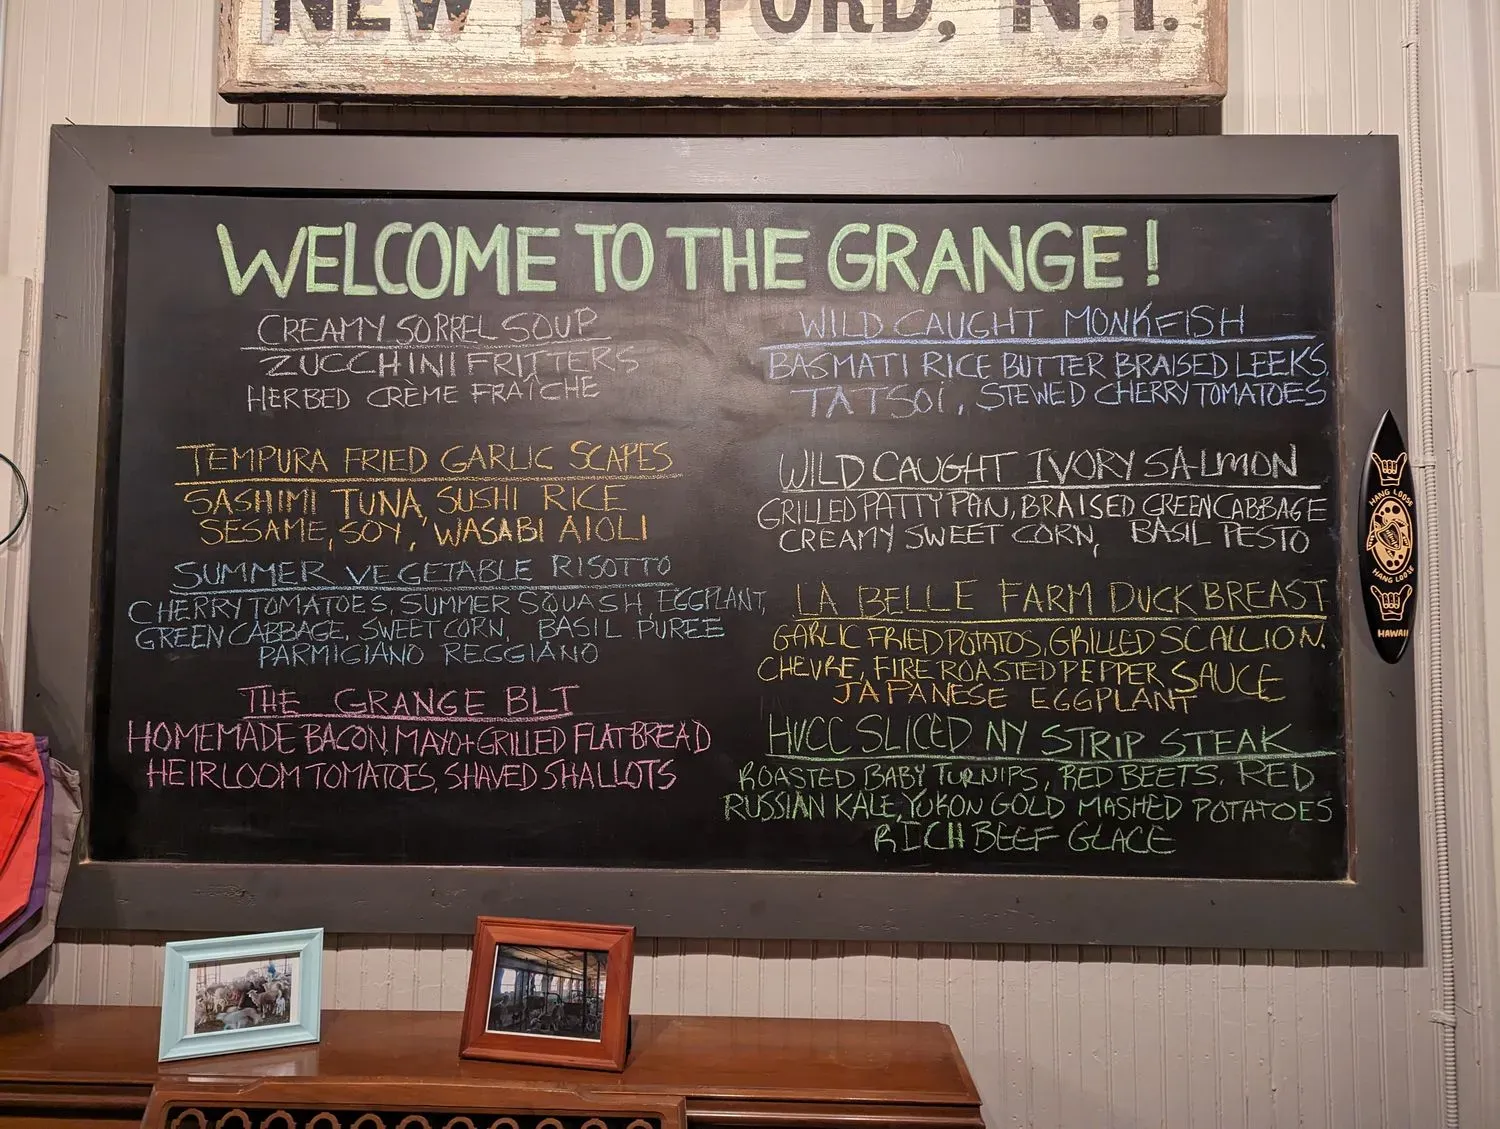 NEW MILFORD, N.Y.
WELCOME TO THE GRANGE!
CREAMY SORREL SOUP
ZUCCHINI FRITTERS
HERBED CRÈME FRAÎCHE
TEMPURA FRIED GARLIC SCAPES
SASHIMI TUNA, SUSHI RICE
SESAME, SOY, WASABI AIOLI
SUMMER VEGETABLE RISOTTO
CHERRY TOMATOES, SUMMER SQUASH, EGGPLANT,
GREEN CABBAGE, SWEET CORN, BASIL PUREE
PARMIGIANO REGGIANO
THE GRANGE BLT
HOMEMADE BACON, MAYO + GRILLED FLATBREAD
HEIRLOOM TOMATOES, SHAVED SHALLOTS
WILD CAUGHT MONKFISH
BASMATI RICE BUTTER BRAISED LEEKS,
TATSOI, STEWED CHERRY TOMATOES
WILD CAUGHT IVORY SALMON
GRILLED PATTY PAN, BRAISED GREEN CABBAGE
CREAMY SWEET CORN, BASIL PESTO
LA BELLE FARM DUCK BREAST
GARLIC FRIED POTATOS, GRILLED SCALLION.
CHEVRE, FIRE ROASTED PEPPER SAUCE
JAPANESE EGGPLANT
HVCC SLICED NY STRIP STEAK
ROASTED BABY TURNIPS, RED BEETS, RED
RUSSIAN KALE, YUKON GOLD MASHED POTATOES
RICH BEEF GLACE
HANG LOOSE
HANG LOOSE
HAWAII